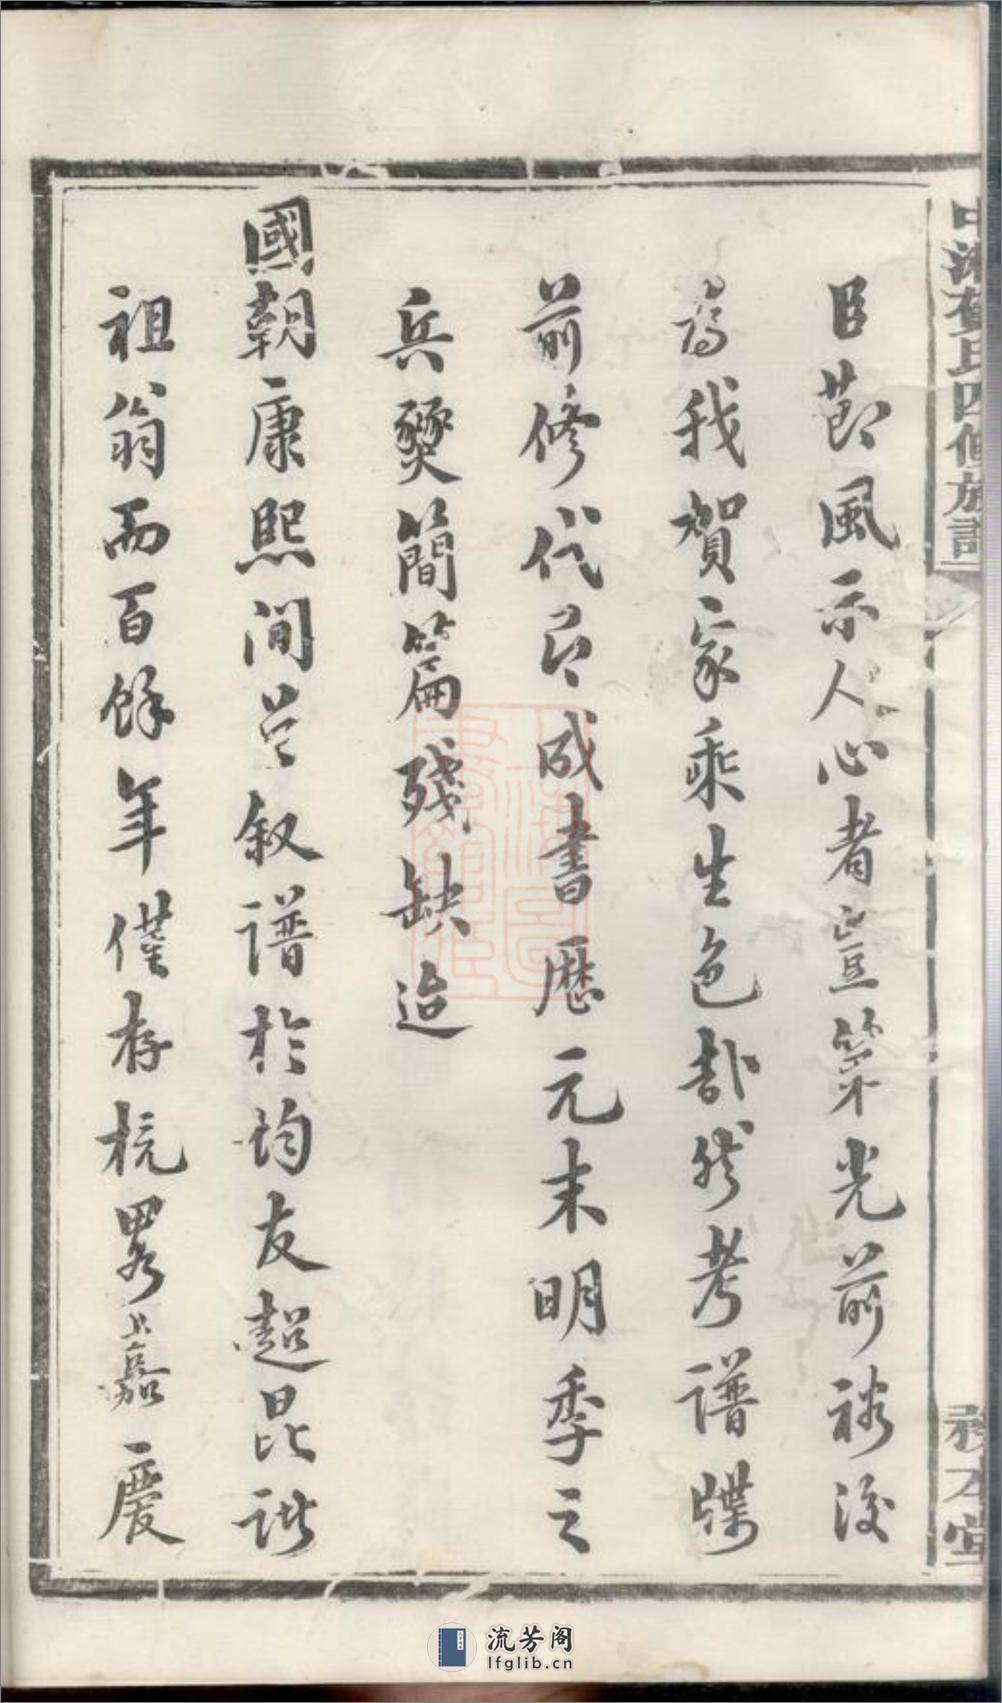 中湘賀氏四修族譜
務本堂
臣莭風示人心者豈第光前裕後
為我賀家乘生色哉然考譜牒
前修代即成書歷元末明季之
兵燹簡篇殘缺迨
國朝康熙间草叙譜於均友超昆诸
祖翁而百餘年僅存梗畧嘉慶
流芳阁
lfglib.cn